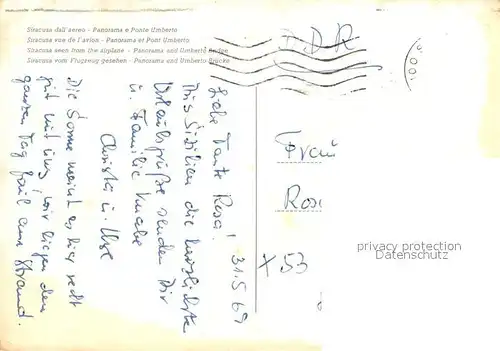 Siracusa dall'aereo - Panorama e Ponte Umberto
Siracusa vue de l'avion - Panorama et Pont Umberto
Siracusa seen from the airplane - Panorama and Umberto Bridge
Siracusa vom Flugzeug gesehen - Panorama und Umberto Brücke
DDR
31.5.69
Liebe Tante Rosa!
Aus Sizilien die herzlichsten
Urlaubsgrüße senden Dir
u. Familie Knabe
Christa u. Uwe
Die Sonne meint es hier recht
gut mit uns, wir liegen den
ganzen Tag faul am Strand.
Frau
Rosi
x 53
privacy protection
Datenschutz